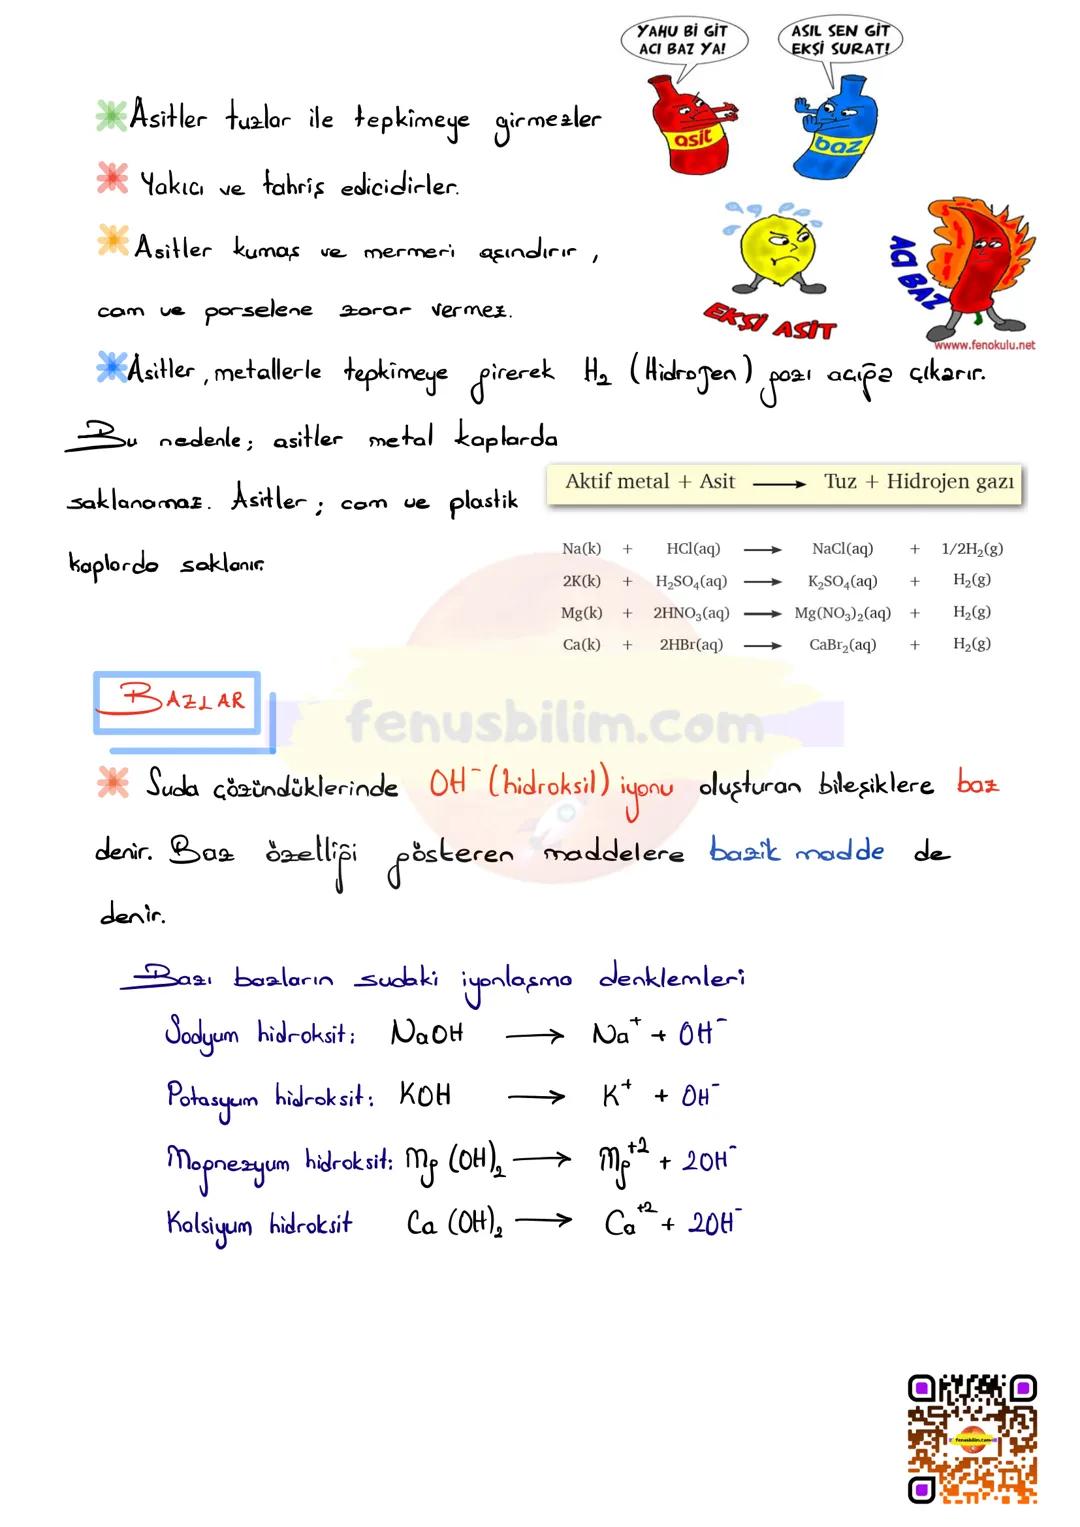 YAHU Bİ GİT
ACI BAZ YA!
ASIL SEN GİT
EKŞİ SURAT!
asit
baz
Asitler tuzlar ile tepkimeye girmezler
Yakıcı ve tahriş edicidirler.
Asitler kumaş ve mermeri aşındırır,
cam ve porselene zarar vermez.
EKŞİ ASİT
ACI BAZ
www.fenokulu.net
Asitler, metallerle tepkimeye girerek H₂ (Hidrojen) gazı açığa çıkarır.
Bu nedenle; asitler metal kaplarda
saklanamaz. Asitler; cam ve plastik
kaplarda saklanır.
Aktif metal + Asit ⟶ Tuz + Hidrojen gazı
Na(k) + HCl(aq) ⟶ NaCl(aq) + 1/2H₂(g)
2K(k) + H₂SO₄(aq) ⟶ K₂SO₄(aq) + H₂(g)
Mg(k) + 2HNO₃(aq) ⟶ Mg(NO₃)₂(aq) + H₂(g)
Ca(k) + 2HBr(aq) ⟶ CaBr₂(aq) + H₂(g)
BAZLAR
fenusbilim.com
Suda çözündüklerinde OH⁻ (hidroksil) iyonu oluşturan bileşiklere baz
denir. Baz özelliği gösteren maddelere bazik madde de
denir.
Bazı bazların sudaki iyonlaşma denklemleri
Sodyum hidroksit: NaOH ⟶ Na⁺ + OH⁻
Potasyum hidroksit: KOH ⟶ K⁺ + OH⁻
Magnezyum hidroksit: Mg (OH)₂ ⟶ Mg⁺² + 2OH⁻
Kalsiyum hidroksit Ca (OH)₂ ⟶ Ca⁺² + 2OH⁻
fenusbilim.com